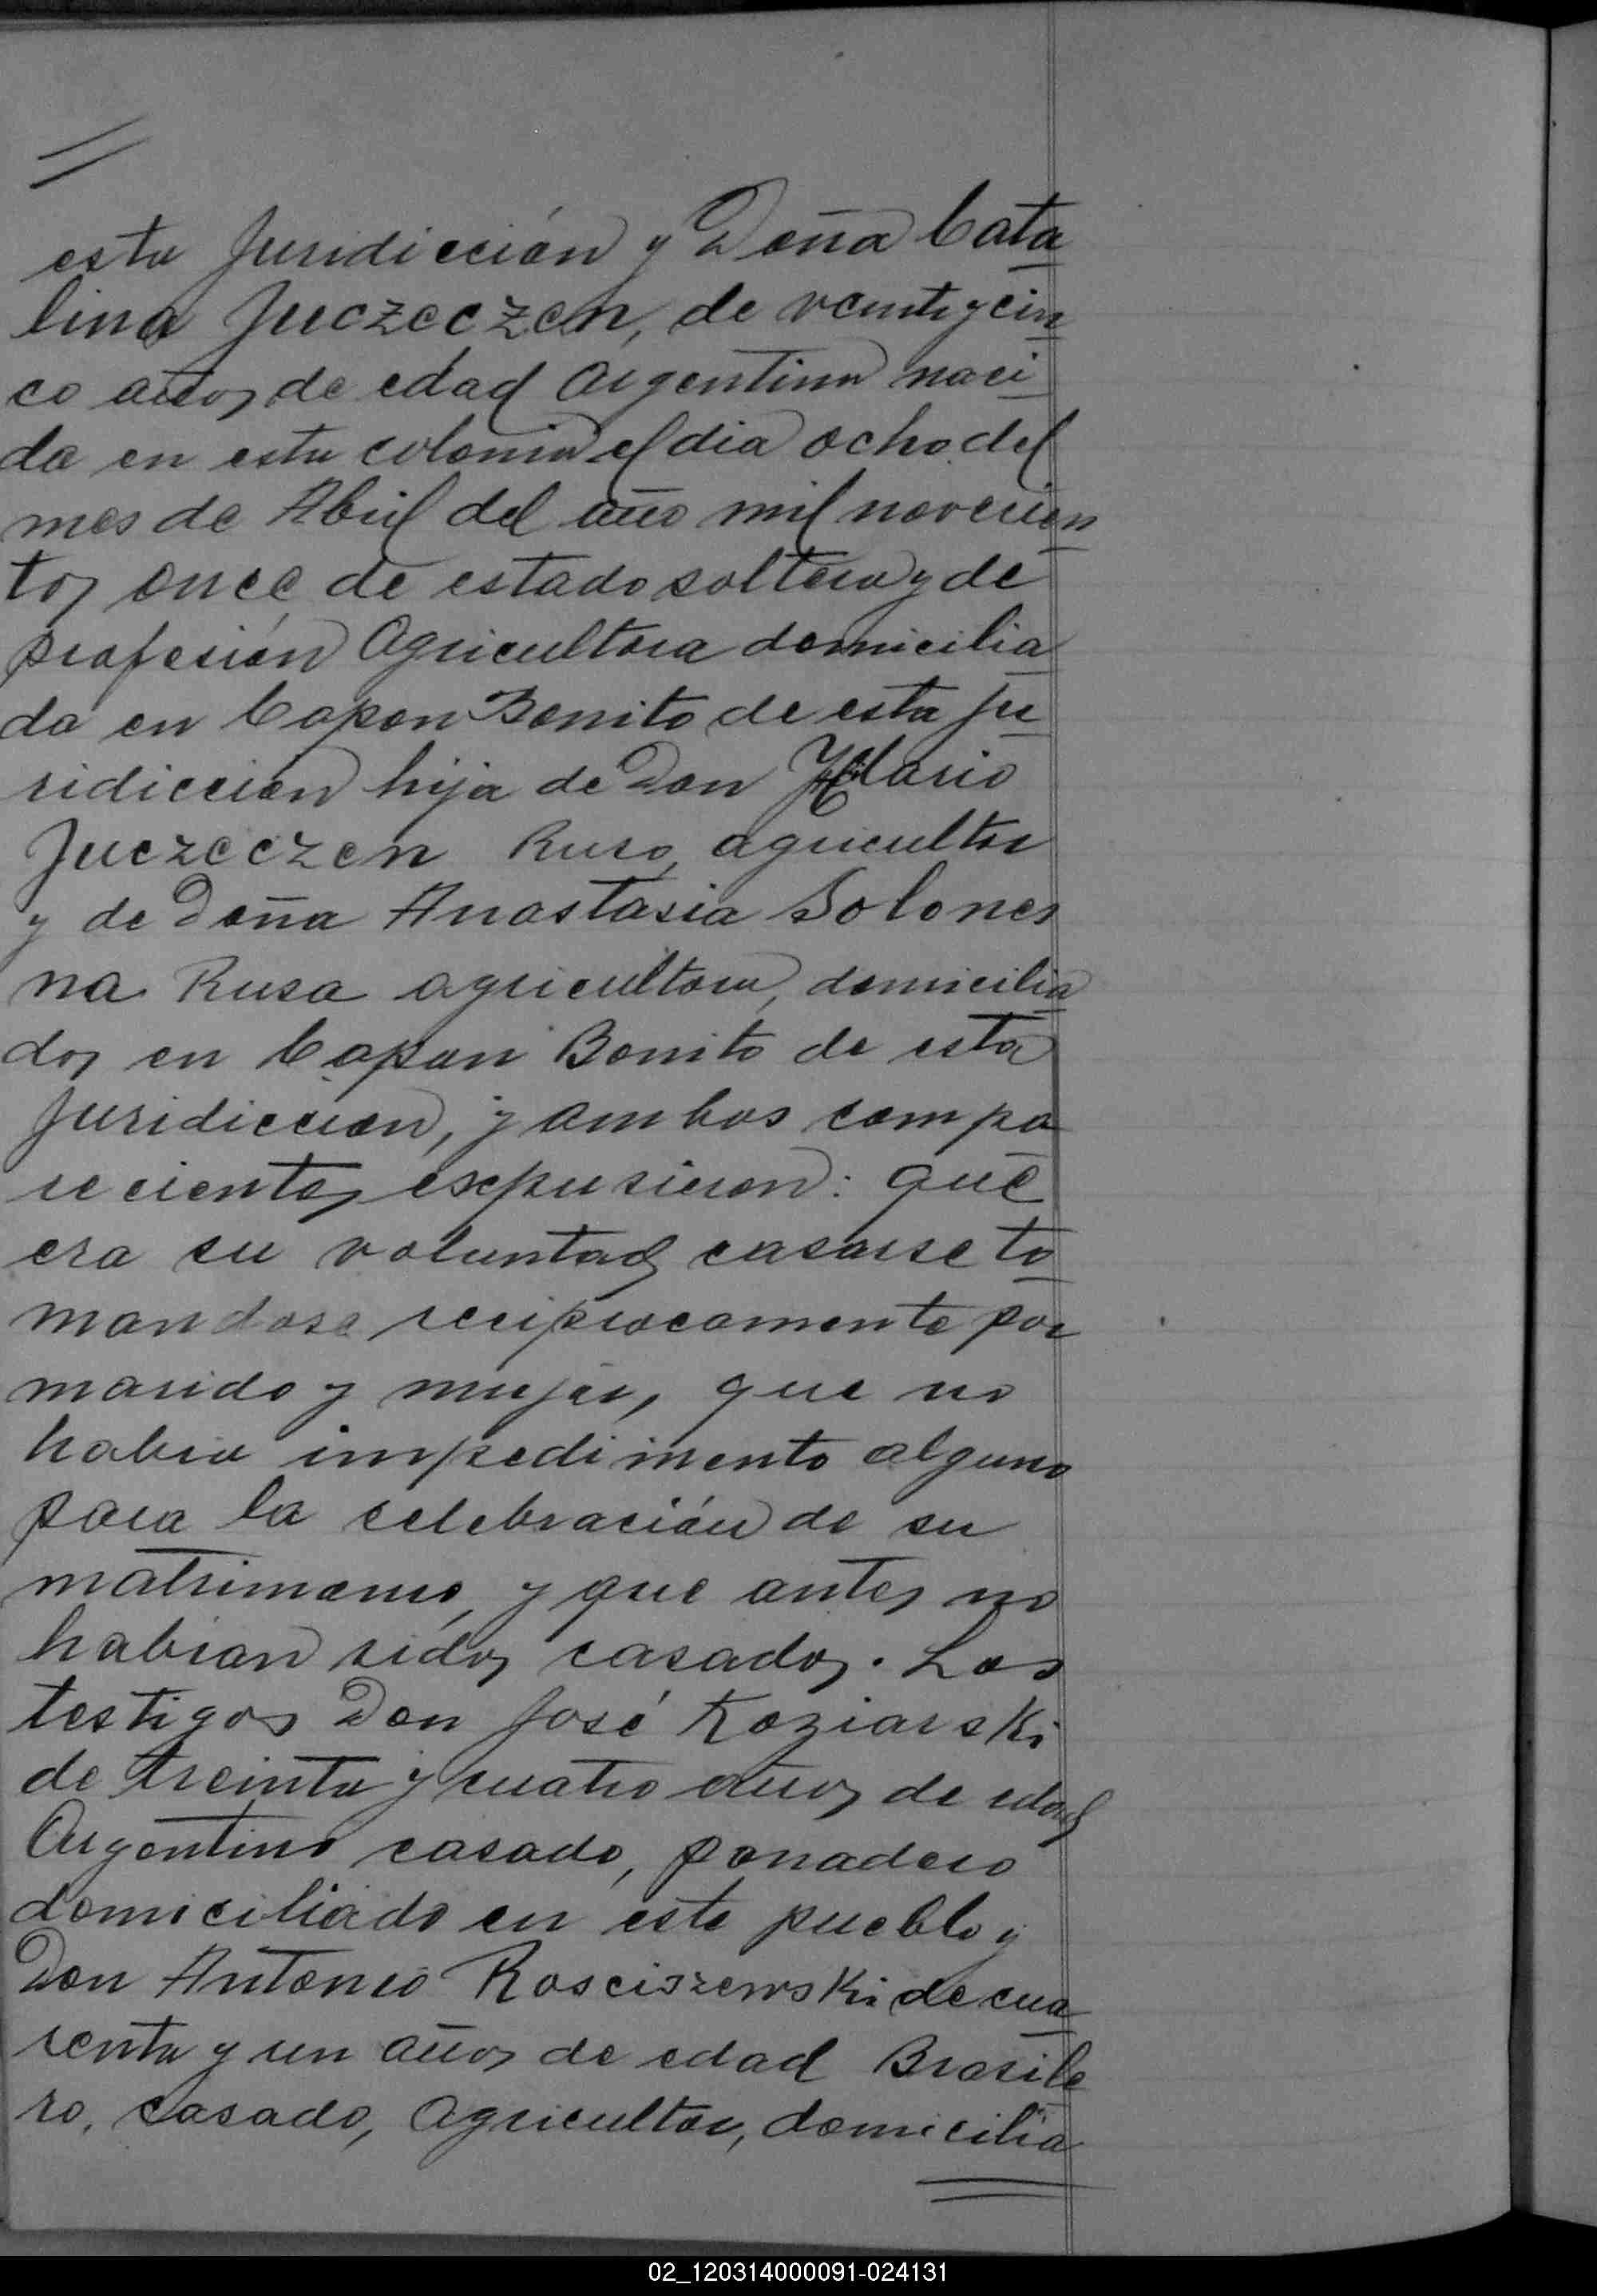 esta Juridicción y Doña Cata
lina Juczeczen, de veinte y cin
co años de edad Argentina naci
da en esta colonia el dia ocho del
mes de Abril del año mil novecien
tos once de estado soltera y de
profesión Agricultora domicilia
da en Capon Bonito de esta ju
ridiccion hija de Don Hilario
Juczeczen Ruso, agricultor
y de Doña Anastasia Solones
na Rusa agricultora, domicilia
dos en Capon Bonito de esta
Juridiccion, y ambos compa
recientes expusieron: que
era su voluntad casarse to
mandose reciprocamente por
marido y mujer, que no
habia impedimento alguno
para la celebración de su
matrimonio, y que antes no
habian sidos casados. Los
testigos Don José Koziarski
de treinta y cuatro años de edad
Argentino casado, panadero
domiciliado en este pueblo y
Don Antonio Rosciszewski de cua
renta y un años de edad Brasile
ro, casado, Agricultor, domicilia
02_120314000091-024131